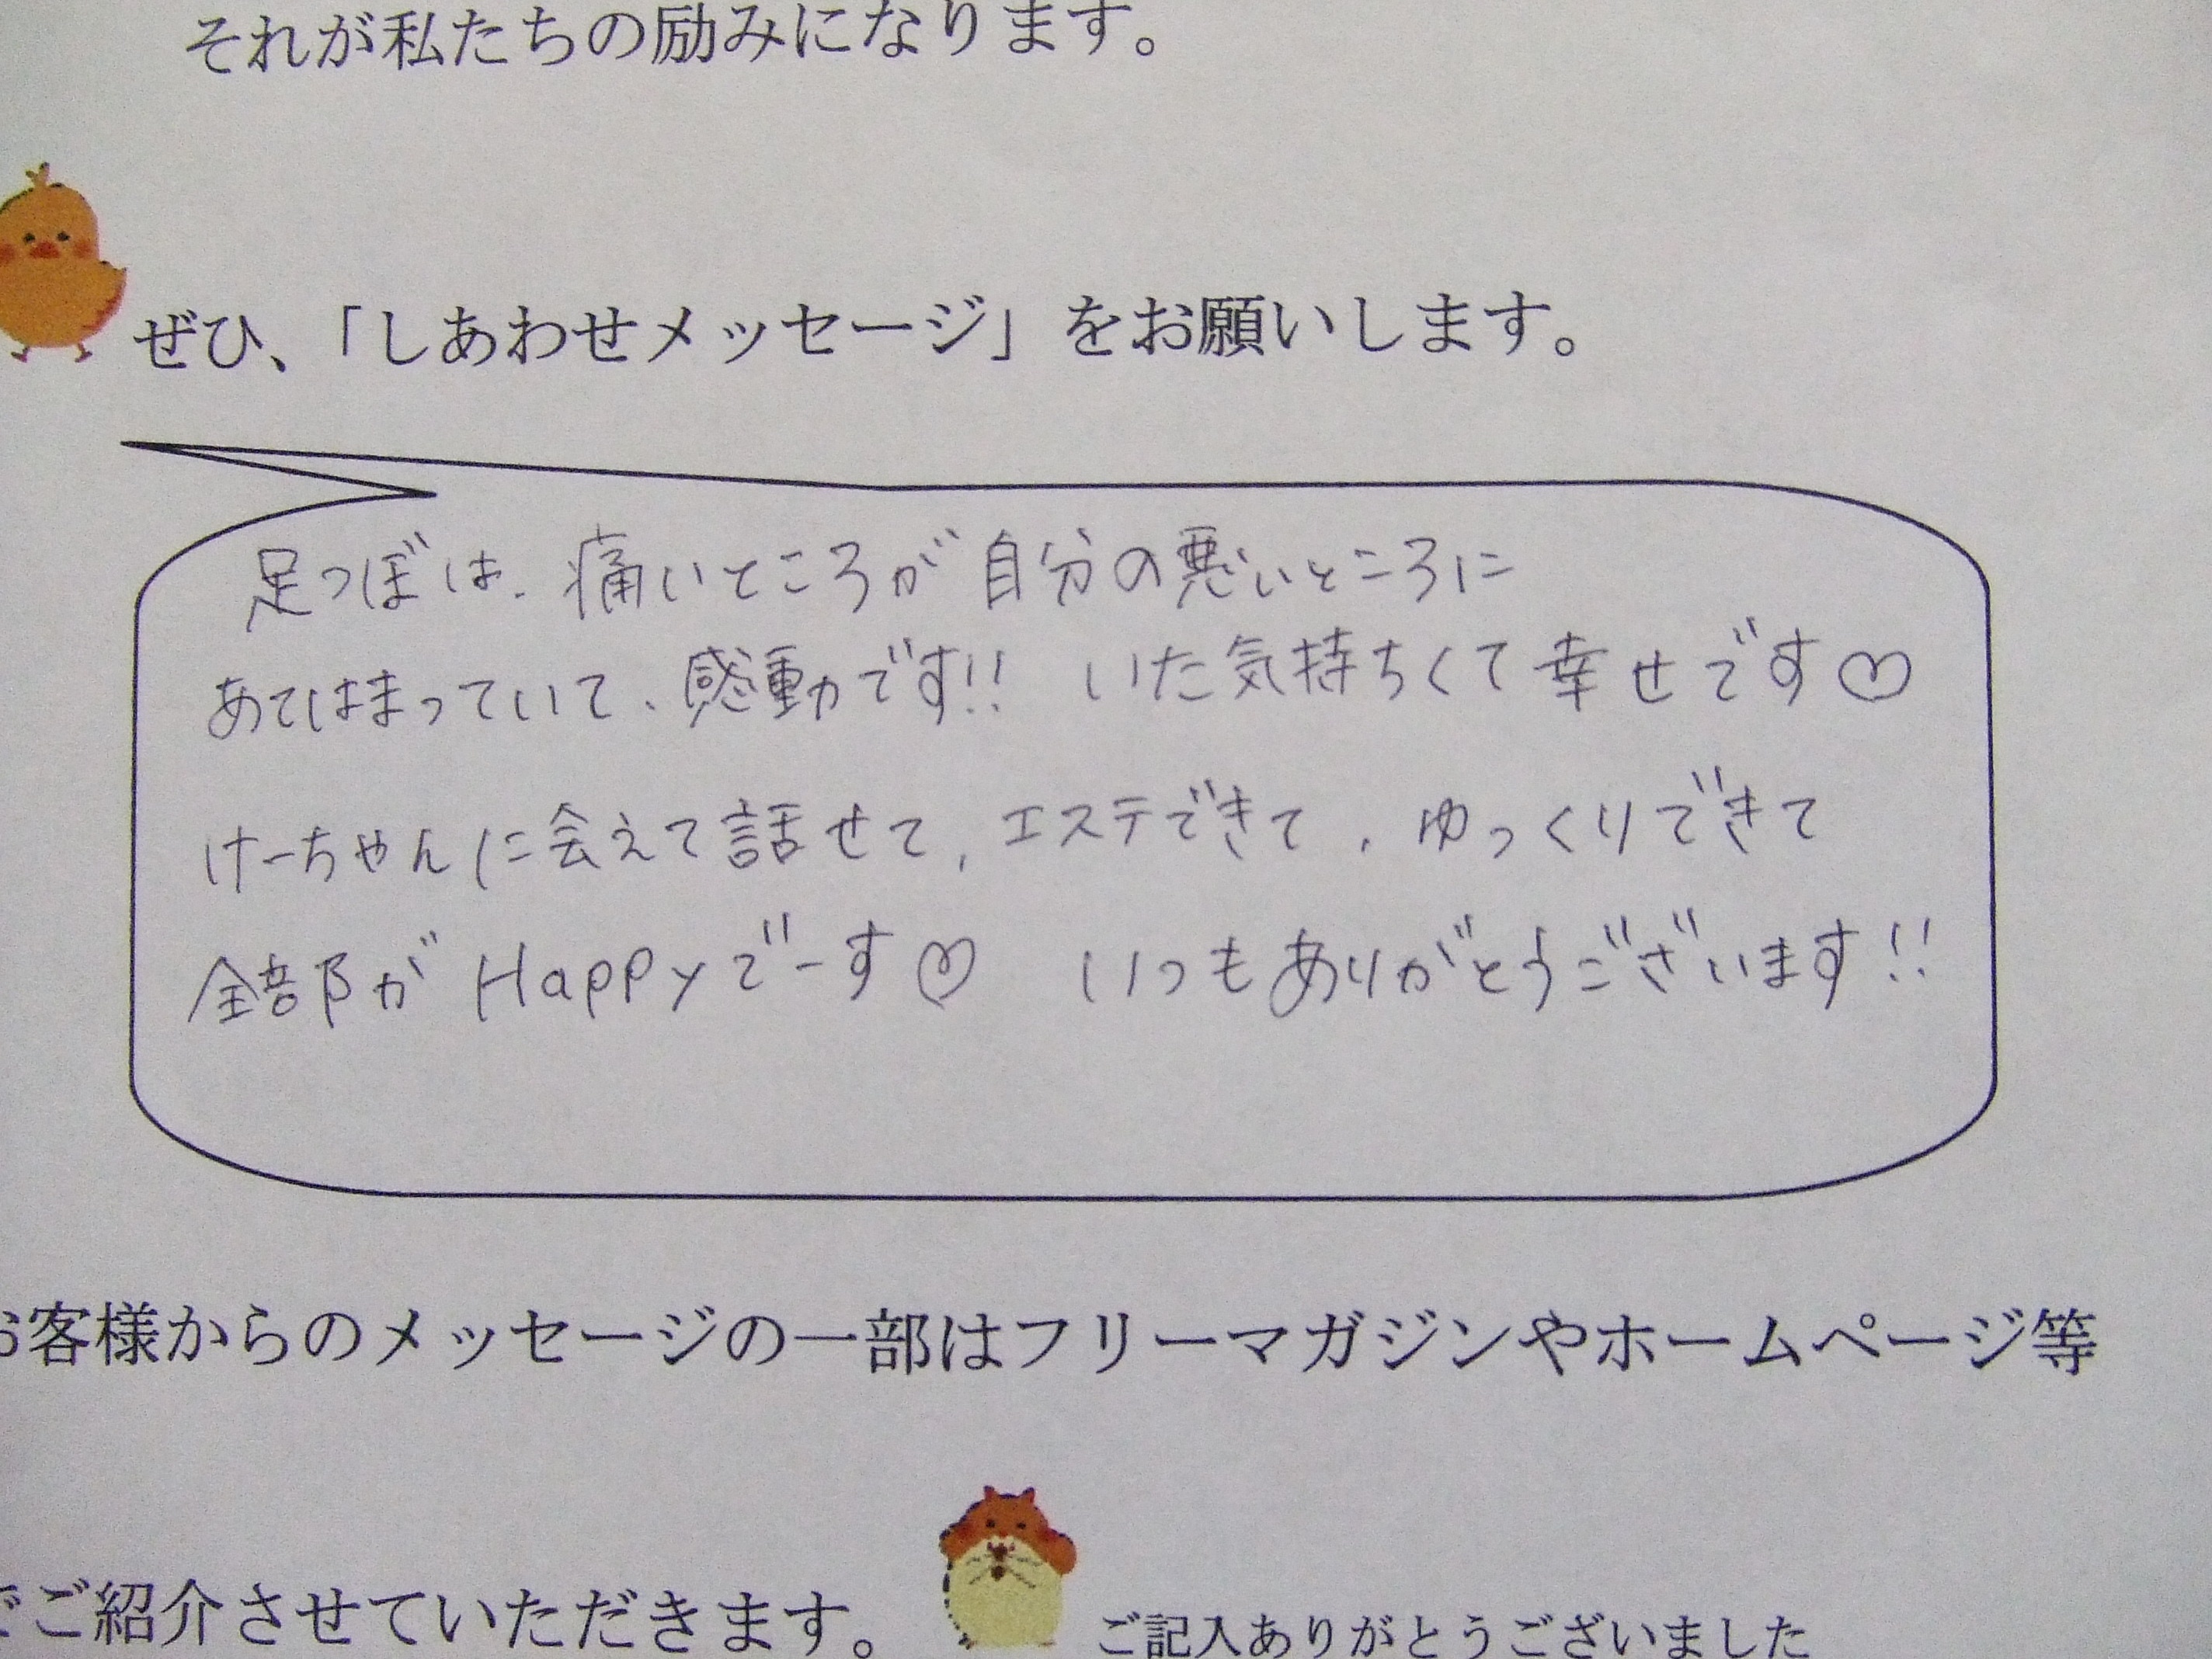 それが私たちの励みになります。
ぜひ、「しあわせメッセージ」をお願いします。
足つぼは、痛いところが自分の悪いところに
あてはまっていて、感動です!! いた気持ちくて幸せです♡
けーちゃんに会えて話せて、エステできて、ゆっくりできて
全部がHappyでーす♡ いつもありがとうございます!!
お客様からのメッセージの一部はフリーマガジンやホームページ等
でご紹介させていただきます。
ご記入ありがとうございました